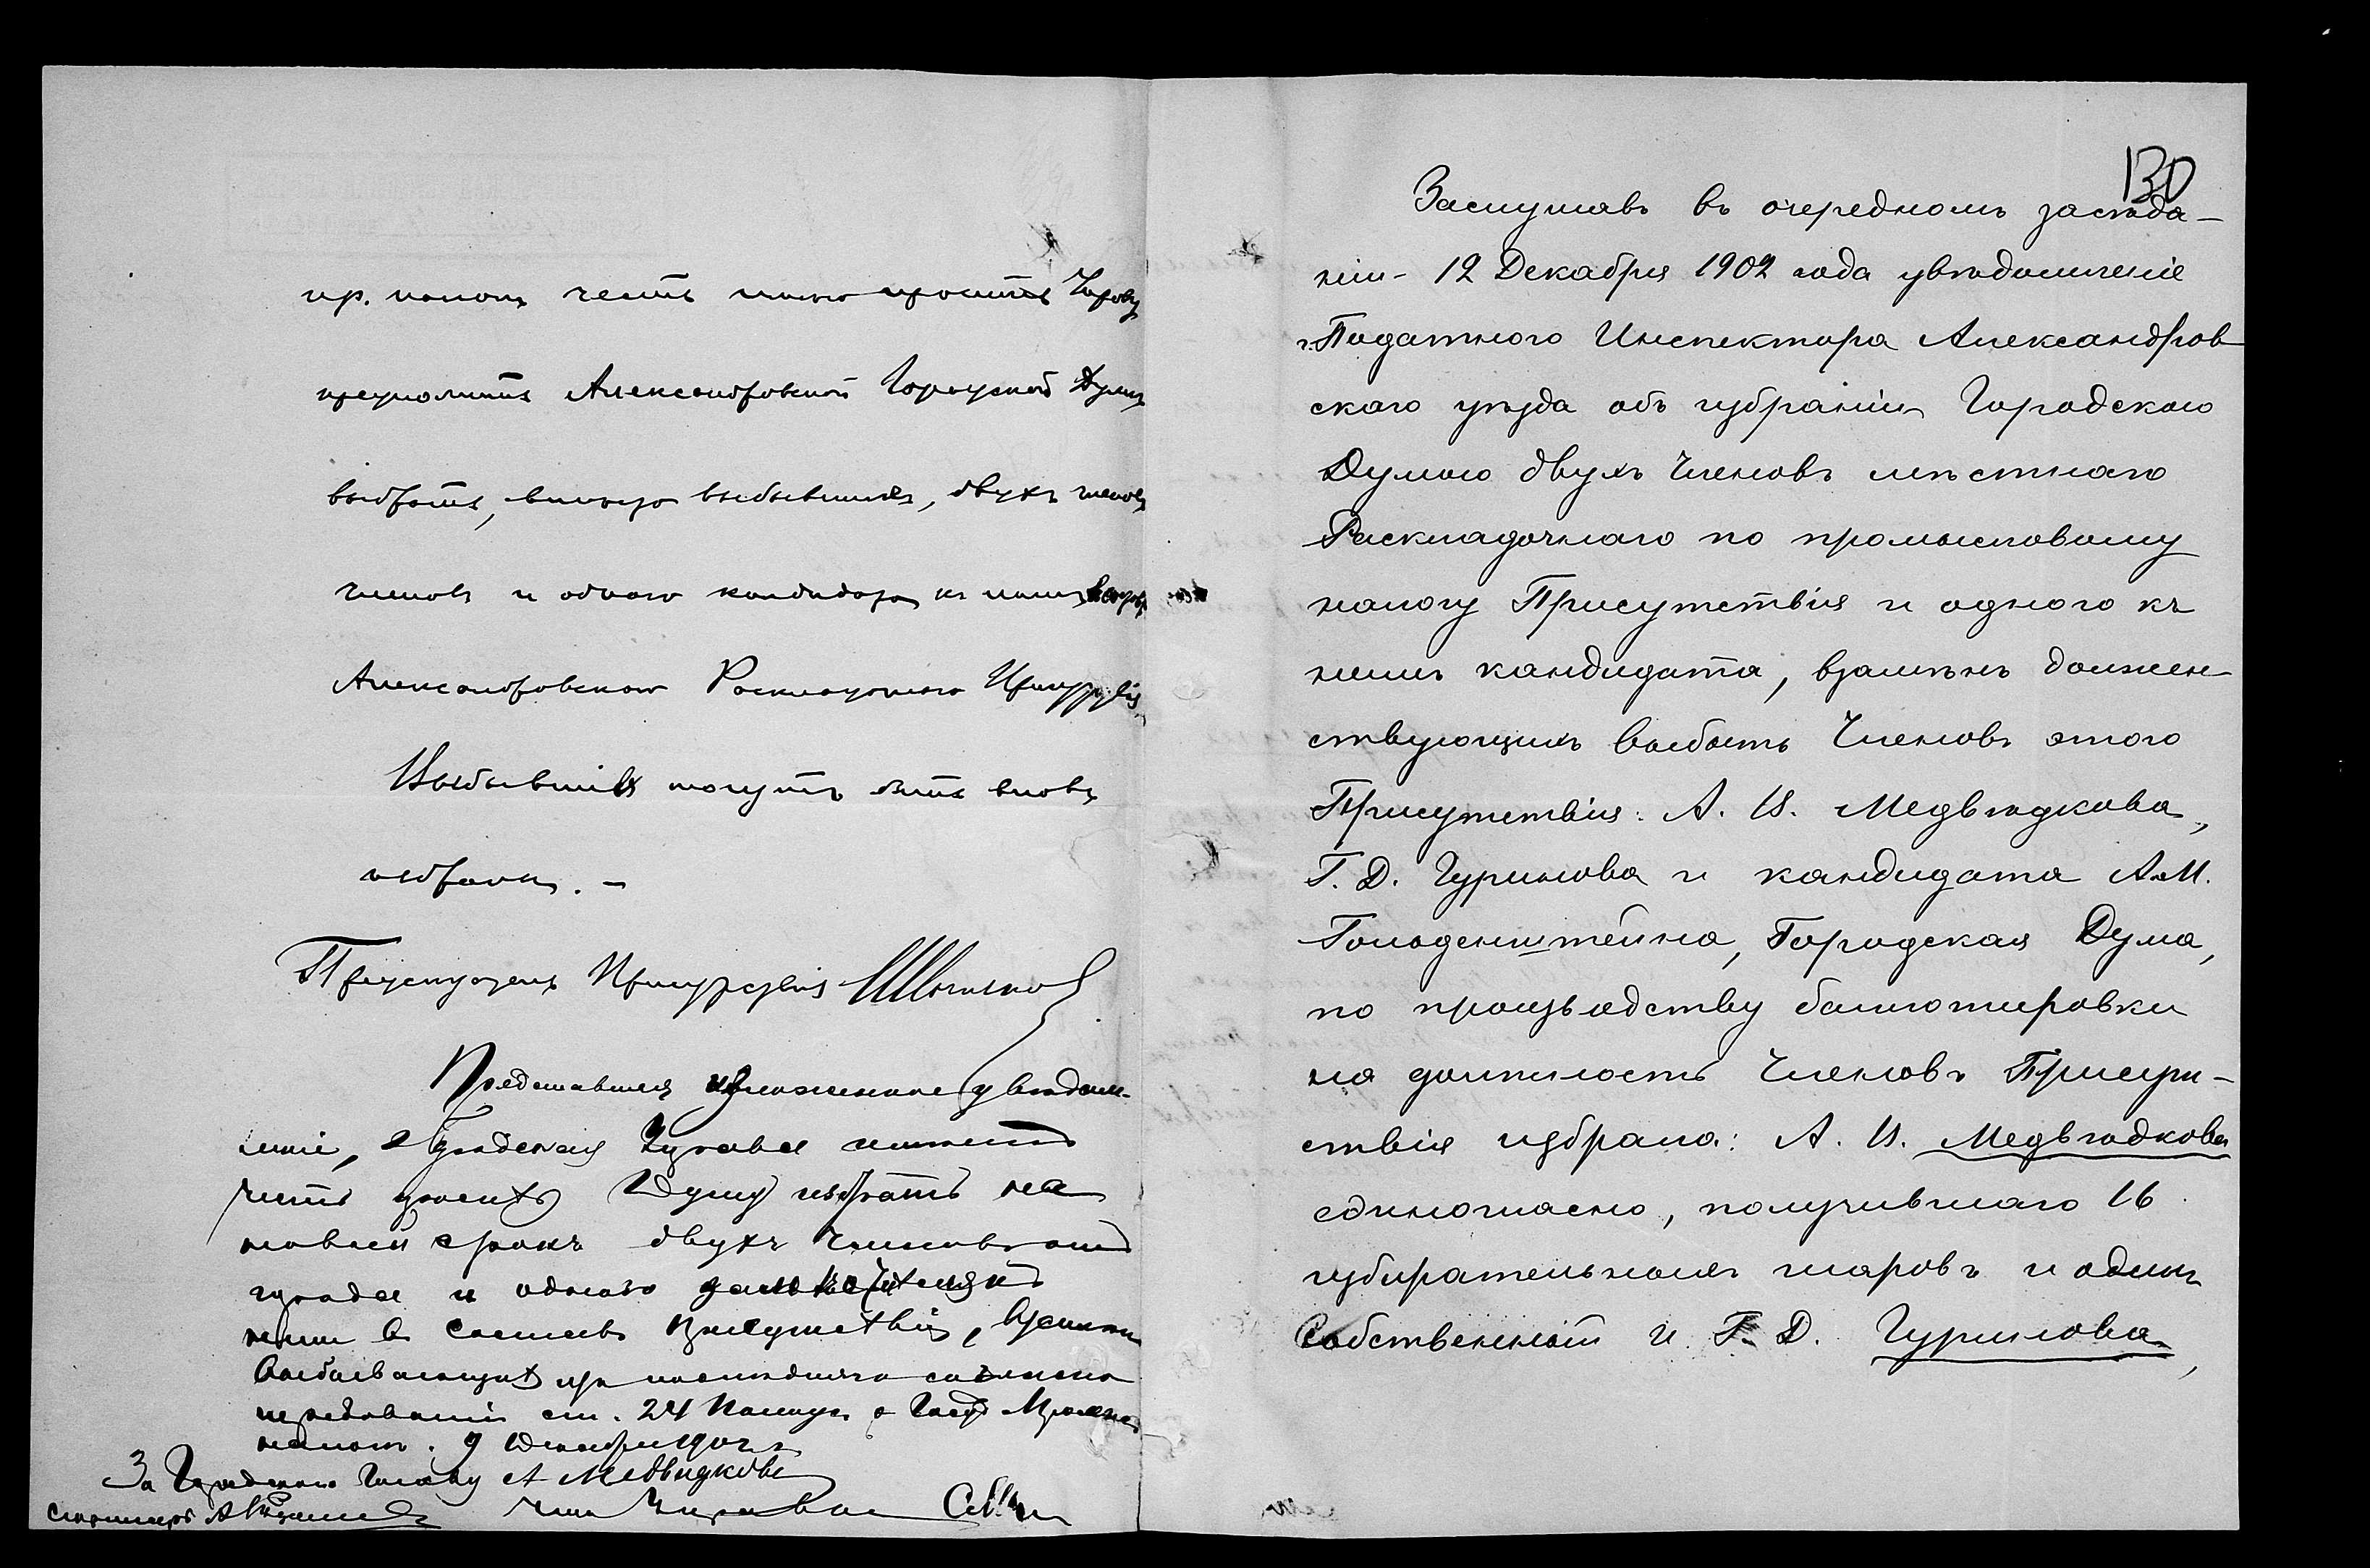 честь имею просить Городск
предложить Александровской Городской Думѣ
выбрать, вмѣсто выбывшихъ, двухъ
членовъ и одного кандидата къ нимъ
Александровскаго Раскладочнаго Присутствія
Выбывшіе могутъ быть вновь
избраны. –
Предсѣдатель Присутствія
Представляя изложенное увѣдом-
леніе, Городская Управа имѣетъ
честь просить Думу избрать на
новый срокъ двухъ членовъ отъ
города и одного къ
нимъ въ составъ Присутствія, взамѣнъ
выбывающихъ изъ послѣдняго
ст. 24 Полож. о Госуд. Промысл
налогѣ. 9 Декабря 1902 г.
За Городского Голову А Медвѣдковъ
Секретарь
130
Заслушавъ въ очередномъ засѣда-
ніи – 12 Декабря 1902 года увѣдомленіе
г. Податного Инспектора Александров
скаго уѣзда объ избраніи Городскою
Думою двухъ Членовъ мѣстнаго
Раскладочнаго по промысловому
налогу Присутствія и одного къ
нимъ кандидата, взамѣнъ должен-
ствующихъ выбыть Членовъ этого
Присутствія: А. И. Медвѣдкова,
Г. Д. Гурилова и кандидата А. М.
Гольденштейна, Городская Дума,
по произведству баллотировки
на должность Членовъ Присут-
ствія избрала: А. И. Медвѣдкова
единогласно, получившаго 16
избирательныхъ шаровъ и одинъ
собственный и Г. Д. Гурилова,